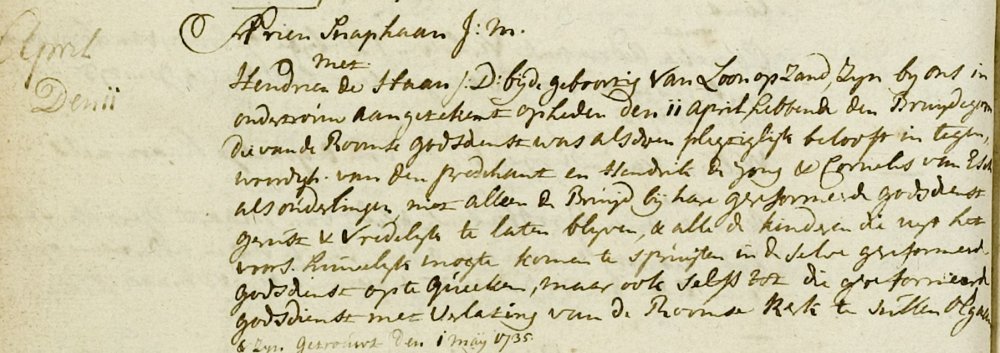 April
Den ii
Arien Snaphaan J: m.
met
Hendrien de Haan J: D: bijde geboortig van Loon op Zand, Zyn by ons in
ondertrouw aangetekent op heden den ii April, hebbende den Bruijdegom
die van de Roomse godsdienst was alsdoen plegtelijk belooft in tegen,
woordigh. van den predikant en Hendrik de Jong & Cornelis van Esch
als ouderlingen, niet alleen de Bruijd bij hare gereformeerde godsdienst
gerust & vredelijk te laten blijven, & alle de kinderen die uijt het
voors. huuwelijk mogte komen te spruijten in de selve gereformeerde
godsdienst op te queeken, maar ook selfs tot die gereformeerde
godsdienst met verlating van de Roomse Kerk te sullen
& Zyn Getrouwt den 1 maij 1735